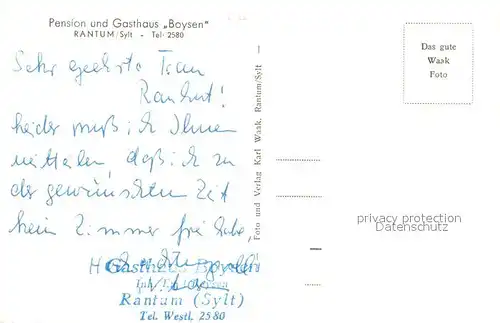 Pension und Gasthaus „Boysen"
RANTUM/Sylt - Tel. 2580
Sehr geehrte Frau
Rankut!
leider muß ich Ihnen
mitteilen, daß ich zu
der gewünschten Zeit
kein Zimmer frei habe,
Gasthaus Boysen
Inh.
Rantum (Sylt)
Tel. Westl. 2580
Foto und Verlag Karl Waak, Rantum/Sylt —
Das gute
Waak
Foto
privacy protection
Datenschutz